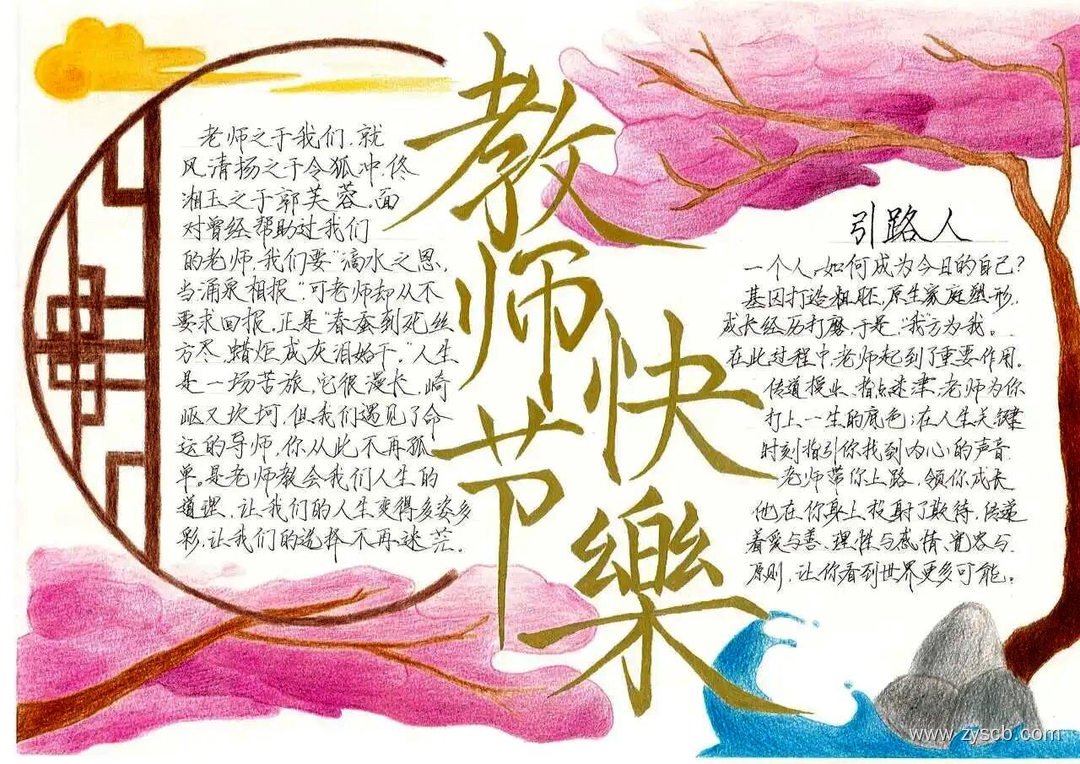 教师节快樂
老师之于我们，就
风清扬之于令狐冲，佟
湘玉之于郭芙蓉，面
对曾经帮助过我们
的老师，我们要“滴水之恩，
当涌泉相报”，可老师却从不
要求回报，正是“春蚕到死丝
方尽，蜡炬成灰泪始干。”人生
是一场苦旅，它很漫长，崎
岖又坎坷，但我们遇见了命
运的导师，你从此不再孤
单。是老师教会我们人生的
道理，让我们的人生变得多姿多
彩，让我们的选择不再迷茫。
引路人
一个人，如何成为今日的自己？
基因打造粗胚，原生家庭塑形，
成长经历打磨，于是“我”方为我。
在此过程中，老师起到了重要作用。
传道授业、指点迷津，老师为你
打上一生的底色；在人生关键
时刻指引你找到内心的声音
老师带你上路，领你成长
他在你身上投射了欺待，传递
着爱与善、理性与感情、宽容与
原则，让你看到世界更多可能。
www.zyscb.com